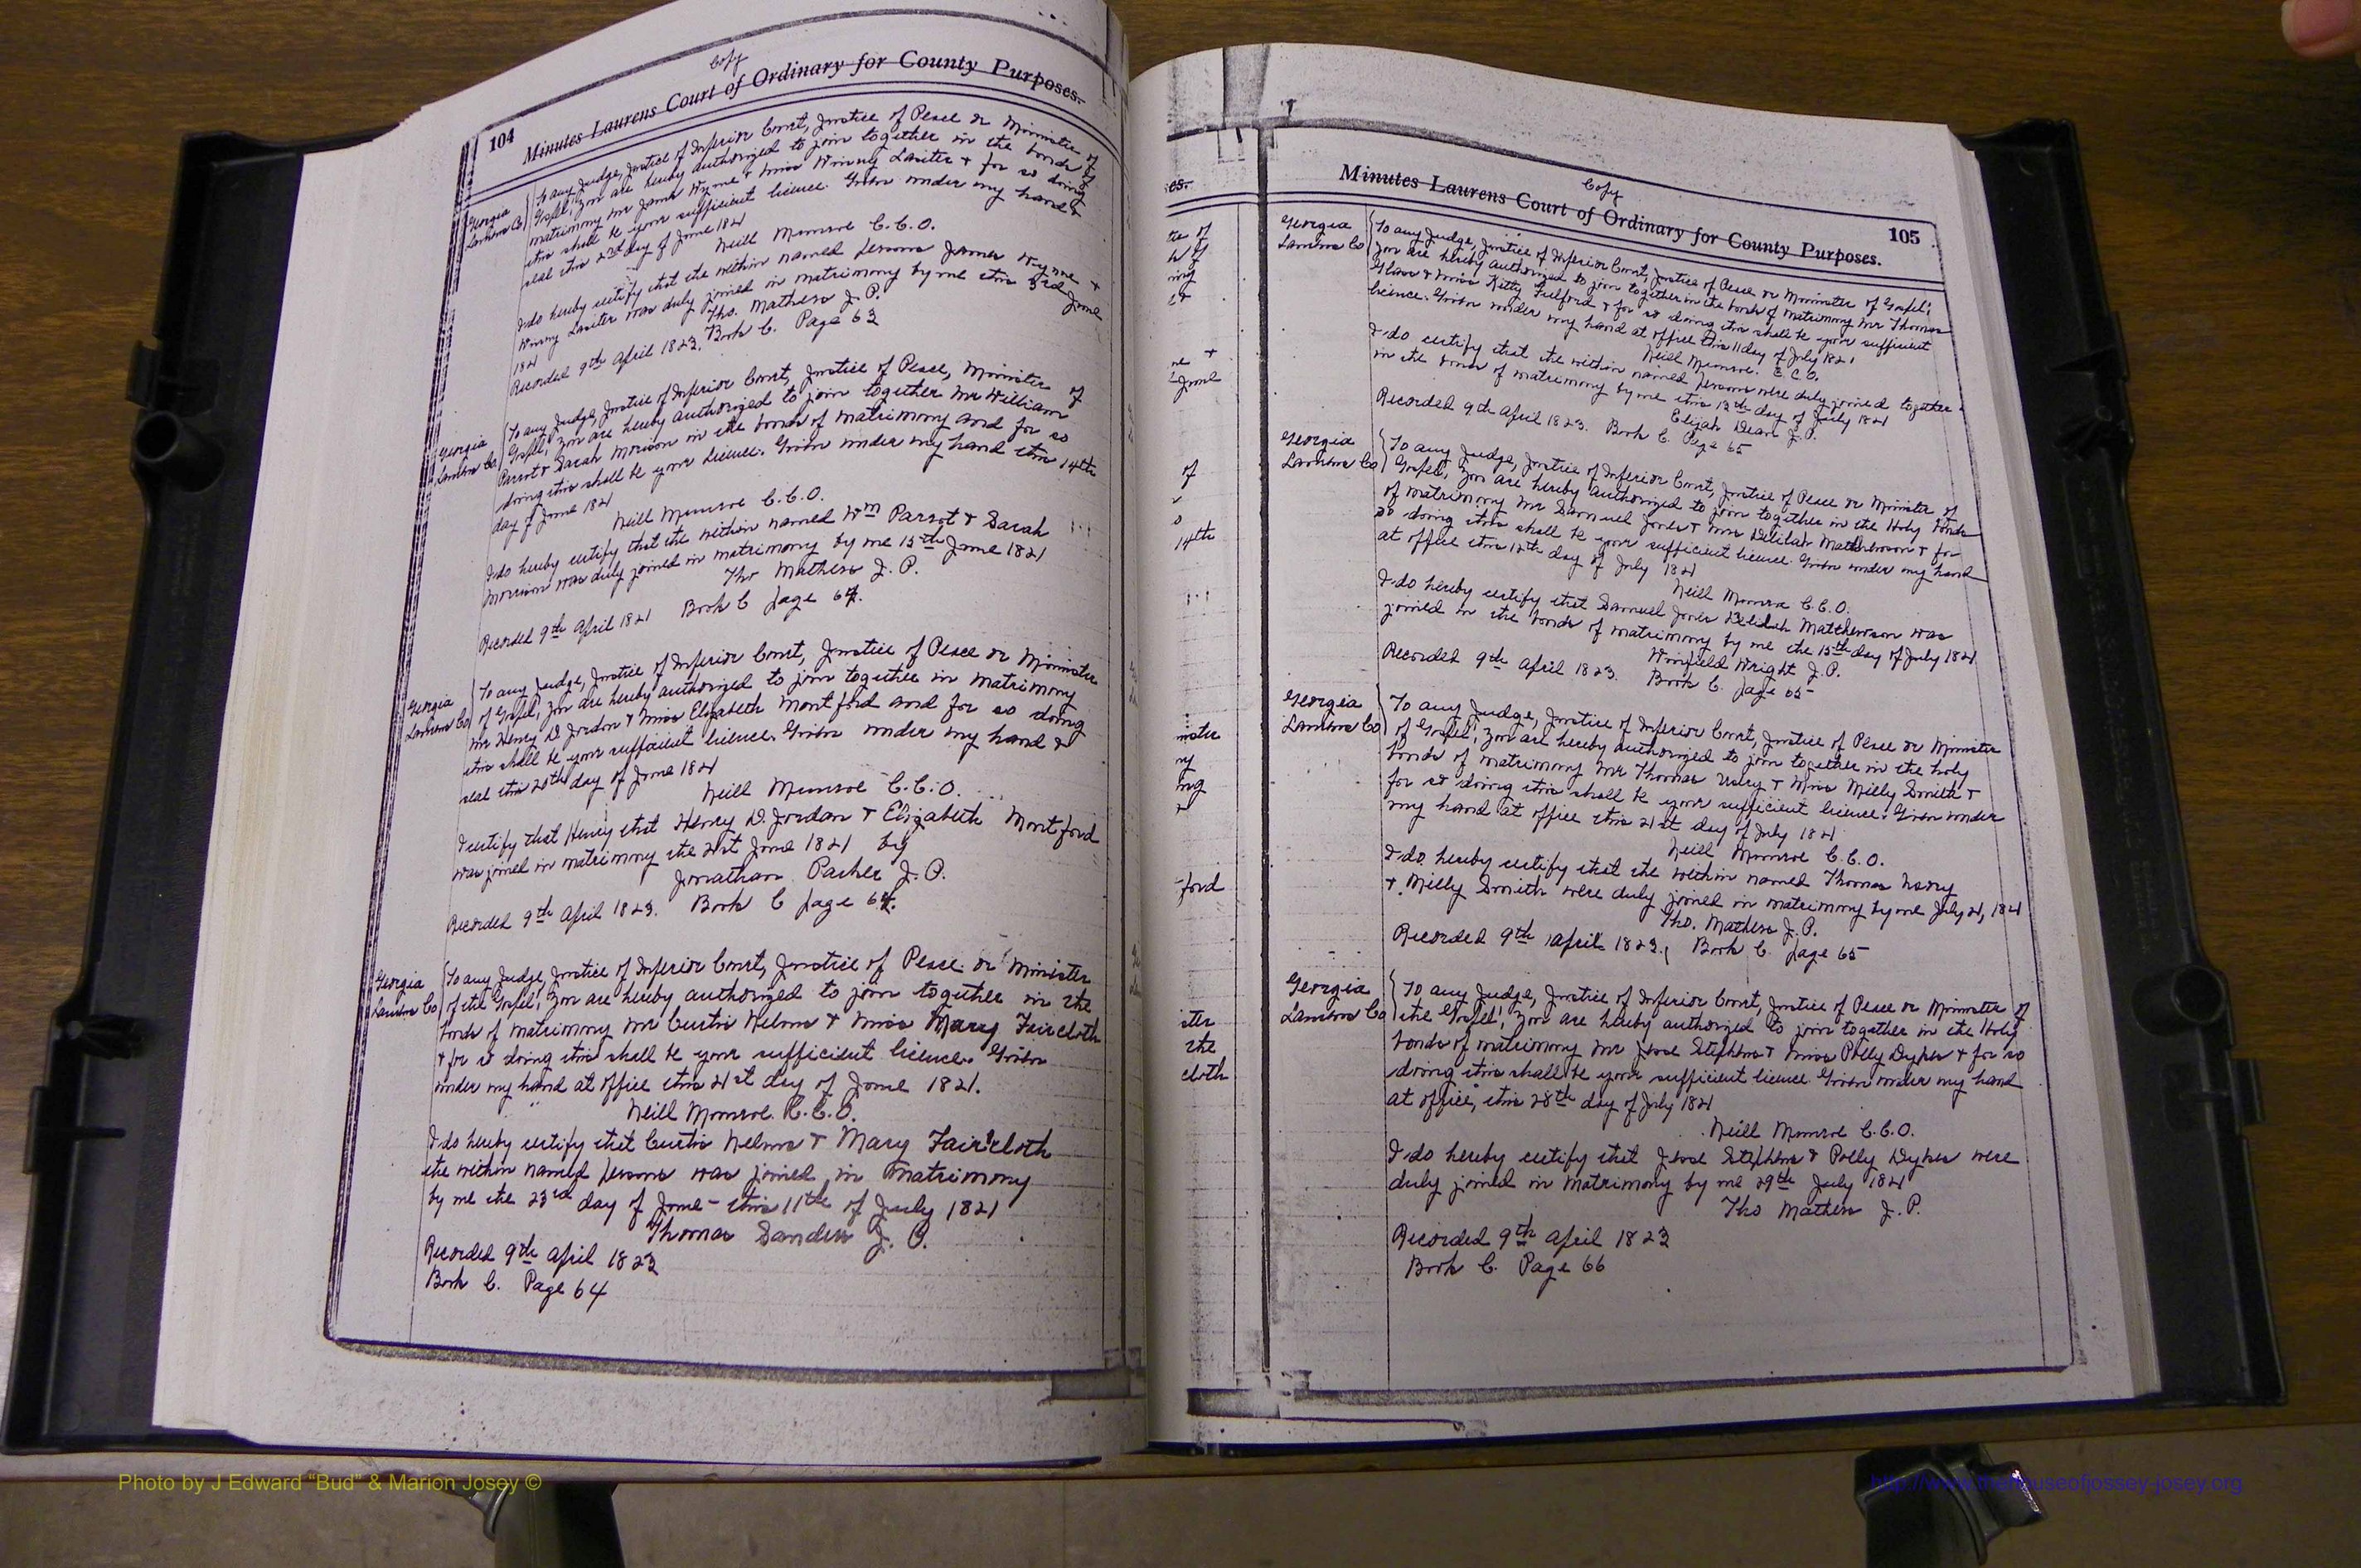 Copy
104 Minutes Laurens Court of Ordinary for County Purposes.
Georgia
Laurens Co
To any Judge, Justice of Inferior Court, Justice of Peace or Minister of
Gospel; you are hereby authorized to join together in the bonds of
matrimony Mr James Wynne & Miss Winny Lasiter & for so doing
this shall be your sufficient licence. Given under my hand &
seal this 2nd day of June 1821
Neill Munroe C.C.O.
I do hereby certify that the within named persons James Wynne &
Winny Lasiter was duly joined in matrimony by me this 3rd June
1821
Thos. Mathers J.P.
Recorded 9th April 1823. Book C. Page 63
Georgia
Laurens Co.
To any Judge, Justice of Inferior Court, Justice of Peace, Minister of
Gospel, you are hereby authorized to join together Mr William
Parrot & Sarah Morison in the bonds of matrimony and for so
doing this shall be your licence. Given under my hand this 14th
day of June 1821
Neill Munroe C.C.O.
I do hereby certify that the within named Wm Parrot & Sarah
Morrison was duly joined in matrimony by me 15th June 1821
Tho Mathers J.P.
Recorded 9th April 1821 Book C page 64.
Georgia
Laurens Co
To any Judge, Justice of Inferior Court, Justice of Peace or Minister
of Gospel, you are hereby authorized to join together in matrimony
Mr Henry D Jordon & Miss Elizabeth Montford and for so doing
this shall be your sufficient licence. Given under my hand &
seal this 20th day of June 1821
Neill Munroe C.C.O.
I certify that Henry that Henry D. Jordan & Elizabeth Montford
was joined in matrimony the 21st June 1821 by
Jonathan Parker J.P.
Recorded 9th April 1823. Book C page 64.
Georgia
Laurens Co
To any Judge, Justice of Inferior Court, Justice of Peace or Minister
of the Gospel, you are hereby authorized to join together in the
bonds of matrimony Mr Curtis Nelms & Miss Mary Faircloth
& for so doing this shall be your sufficient licence. Given
under my hand at office this 21st day of June 1821.
Neill Munroe C.C.O.
I do hereby certify that Curtis Nelms & Mary Faircloth
the within named persons was joined in matrimony
by me the 23rd day of June - this 11th of July 1821
Thomas Sanders J.P.
Recorded 9th April 1823
Book C. Page 64
es.
ne &
June
of
14th
ford
the
cloth
Copy
Minutes Laurens Court of Ordinary for County Purposes. 105
Georgia
Laurens Co
To any Judge, Justice of Inferior Court, Justice of Peace or Minister of Gospel;
you are hereby authorized to join together in the bonds of matrimony Mr Thomas
& Miss Kitty Fulford & for so doing this shall be your sufficient
licence. Given under my hand at office this 11 day of July 1821
Neill Munroe. C.C.O.
I do certify that the within named persons were duly joined together
in the bonds of matrimony by me this 12th day of July 1821
Elijah Dean J.P.
Recorded 9th April 1823. Book C. Page 65
Georgia
Laurens Co
To any Judge, Justice of Inferior Court, Justice of Peace or Minister of
Gospel, you are hereby authorized to join together in the Holy bonds
of matrimony Mr Samuel Jones & Mrs Delilah Matthewson & for
so doing this shall be your sufficient licence. Given under my hand
at office this 12th day of July 1821
Neill Munroe C.C.O.
I do hereby certify that Samuel Jones Delilah Matthewson was
joined in the bonds of matrimony by me the 15th day of July 1821
Winfield Wright J.P.
Recorded 9th April 1823. Book C. page 65
Georgia
Laurens Co
To any Judge, Justice of Inferior Court, Justice of Peace or Minister
of Gospel, you are hereby authorized to join together in the holy
bonds of matrimony Mr Thomas Usery & Miss Milly Smith &
for so doing this shall be your sufficient licence. Given under
my hand at office this 21st day of July 1821
Neill Munroe C.C.O.
I do hereby certify that the within named Thomas Usery
& Milly Smith were duly joined in matrimony by me July 21, 1821
Tho. Mathers J.P.
Recorded 9th April 1823, Book C. page 65
Georgia
Laurens Co
To any Judge, Justice of Inferior Court, Justice of Peace or Minister of
the Gospel, you are hereby authorized to join together in the Holy
bonds of matrimony Mr Jesse Stephens & Miss Polly Dykes & for so
doing this shall be your sufficient licence Given under my hand
at office, this 28th day of July 1821
Neill Munroe C.C.O.
I do hereby certify that Jesse Stephens & Polly Dykes were
duly joined in matrimony by me 29th July 1821
Tho Mathers J.P.
Recorded 9th April 1823
Book C. Page 66
Photo by J Edward “Bud” & Marion Josey ©
http://www.thehouseofjossey-josey.org